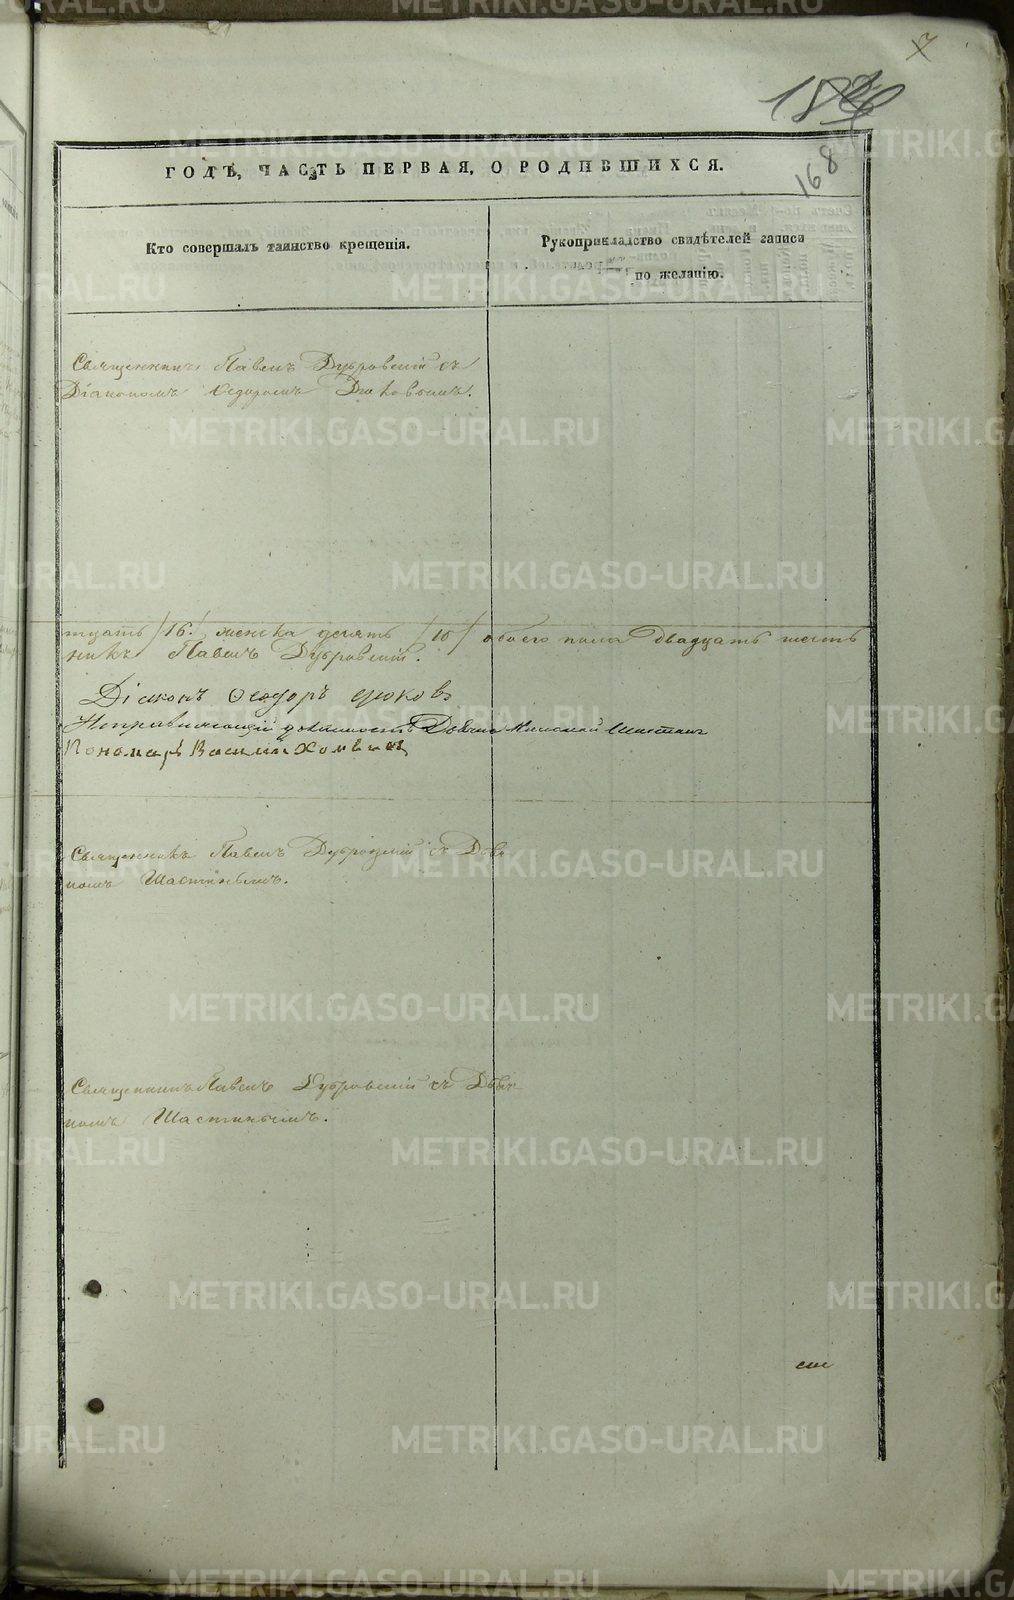 7
168
ГОДѢ, ЧАСТЬ ПЕРВАЯ, О РОДИВШИХСЯ.
Кто совершалъ таинство крещенія.
Рукоприкладство свидѣтелей записи
по желанію.
Священникъ Павелъ Дубровскій съ
Діакономъ Ѳедоромъ Дюковымъ.
тцать /16/ женска десять /10/ обоего пола двадцать шесть
никъ Павелъ Дубровскій.
Діаконъ Ѳеодоръ Дюковъ
Исправляющій должность
Пономарь Василій
Священникъ Павелъ Дубровскій съ Дьяч
комъ Шастинымъ.
Священникъ Павелъ Дубровскій съ Дьяч
комъ Шастинымъ.
METRIKI.GASO-URAL.RU